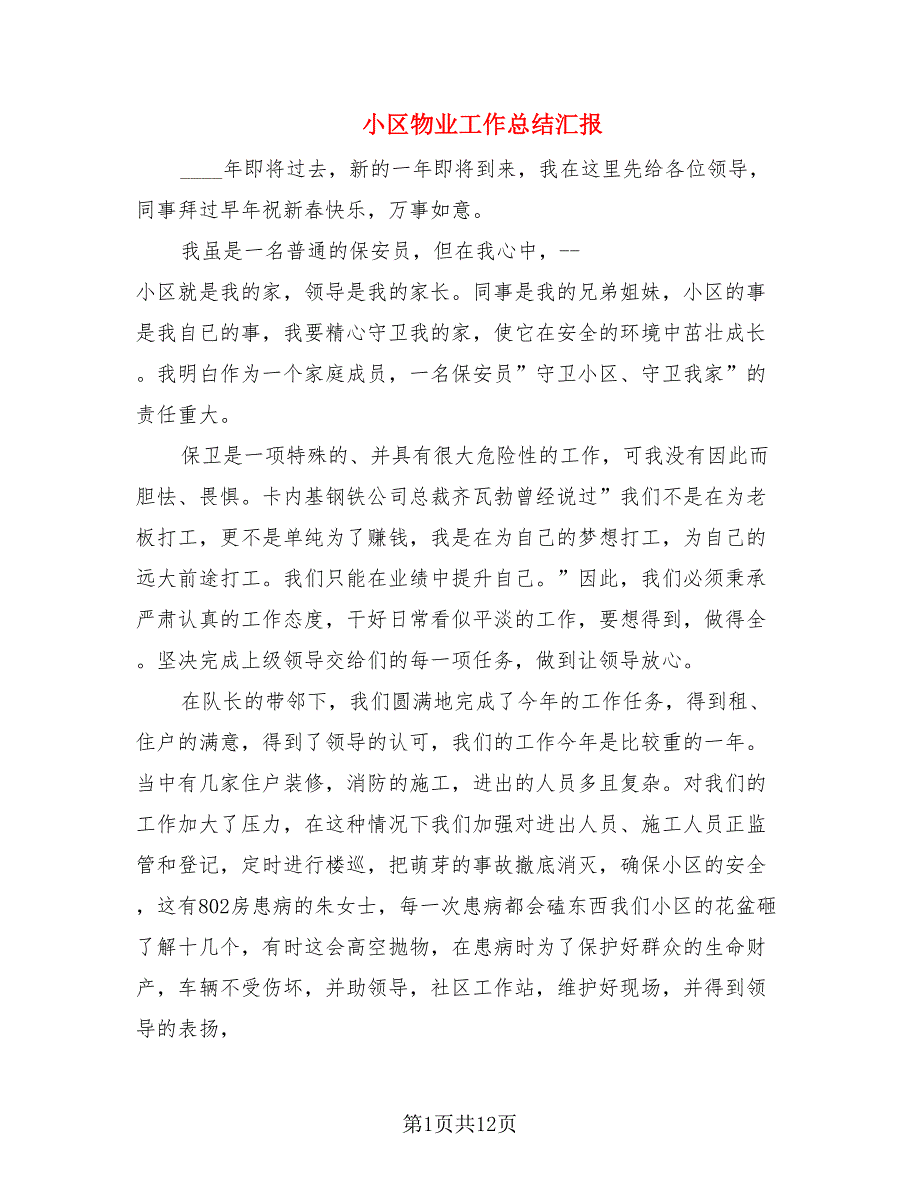 小区物业工作总结汇报
____年即将过去，新的一年即将到来，我在这里先给各位领导，
同事拜过早年祝新春快乐，万事如意。
我虽是一名普通的保安员，但在我心中，--
小区就是我的家，领导是我的家长。同事是我的兄弟姐妹，小区的事
是我自已的事，我要精心守卫我的家，使它在安全的环境中茁壮成长
。我明白作为一个家庭成员，一名保安员”守卫小区、守卫我家”的
责任重大。
保卫是一项特殊的、并具有很大危险性的工作，可我没有因此而
胆怯、畏惧。卡内基钢铁公司总裁齐瓦勃曾经说过”我们不是在为老
板打工，更不是单纯为了赚钱，我是在为自己的梦想打工，为自己的
远大前途打工。我们只能在业绩中提升自己。”因此，我们必须秉承
严肃认真的工作态度，干好日常看似平淡的工作，要想得到，做得全
。坚决完成上级领导交给们的每一项任务，做到让领导放心。
在队长的带邻下，我们圆满地完成了今年的工作任务，得到租、
住户的满意，得到了领导的认可，我们的工作今年是比较重的一年。
当中有几家住户装修，消防的施工，进出的人员多且复杂。对我们的
工作加大了压力，在这种情况下我们加强对进出人员、施工人员正监
管和登记，定时进行楼巡，把萌芽的事故撤底消灭，确保小区的安全
，这有802房患病的朱女士，每一次患病都会磕东西我们小区的花盆砸
了解十几个，有时这会高空抛物，在患病时为了保护好群众的生命财
产，车辆不受伤坏，并助领导，社区工作站，维护好现场，并得到领
导的表扬，
第1页共12页